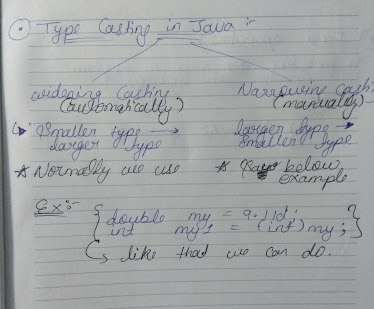 Type Casting in Java :-
widening Casting Narrowing Casti
(automatically) (manually)
Smaller type → larger type →
larger type Smaller type
* Normally we use * below
example
Ex:- { double my = 9.11d; }
int my1 = (int) my;
↳ like that we can do.